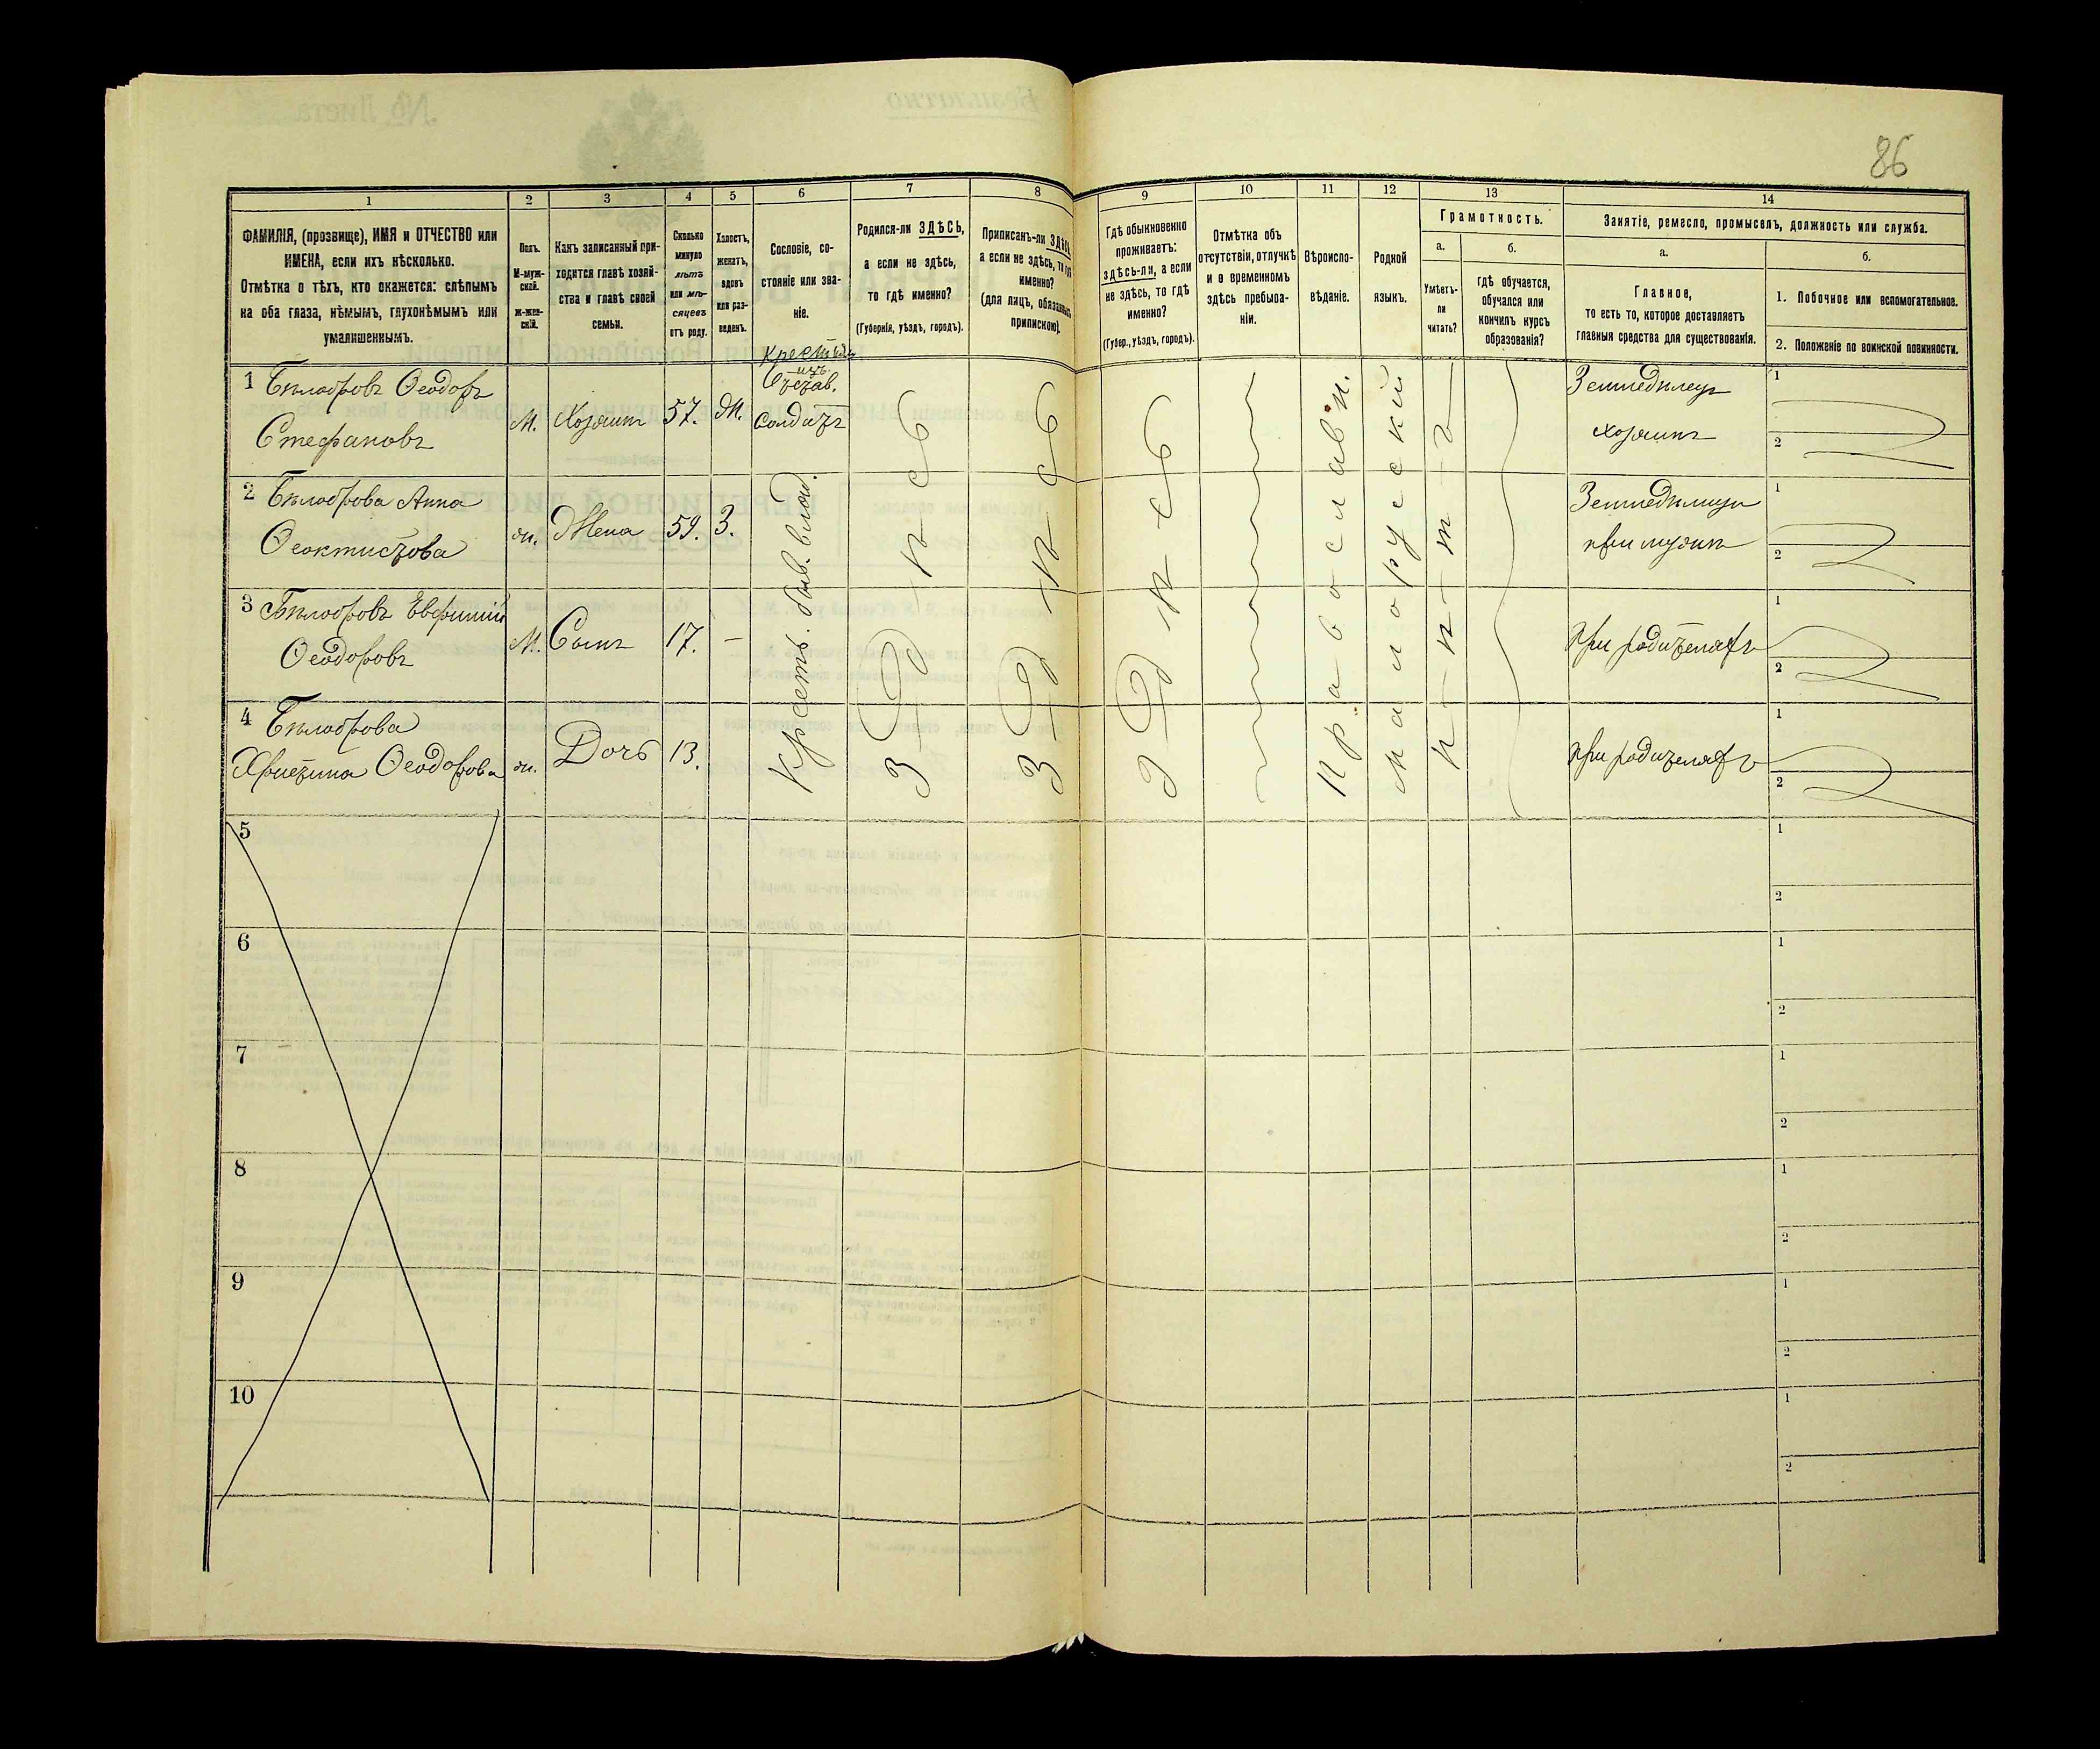 86
1
2
3
4
5
6
7
8
9
10
11
12
13
14
ФАМИЛІЯ, (прозвище), ИМЯ и ОТЧЕСТВО или
ИМЕНА, если ихъ нѣсколько.
Отмѣтка о тѣхъ, кто окажется: слѣпымъ
на оба глаза, нѣмымъ, глухонѣмымъ или
умалишеннымъ.
Полъ.
М-муж-
ской.
Ж-жен-
скій.
Какъ записанный при-
ходится главѣ хозяй-
ства и главѣ своей
семьи.
Сколько
минуло
лѣтъ
или мѣ-
сяцевъ
отъ роду.
Холостъ,
женатъ,
вдовъ
или раз-
веденъ.
Сословіе, со-
стояніе или зва-
ніе.
Родился-ли ЗДѢСЬ,
а если не здѣсь,
то гдѣ именно?
(Губернія, уѣздъ, городъ).
Приписанъ-ли ЗДѢСЬ,
а если не здѣсь, то гдѣ
именно?
(для лицъ, обязанныхъ
припискою).
Гдѣ обыкновенно
проживаетъ:
здѣсь-ли, а если
не здѣсь, то гдѣ
именно?
(Губер., уѣздъ, городъ).
Отмѣтка объ
отсутствіи, отлучкѣ
и о временномъ
здѣсь пребыва-
ніи.
Вѣроиспо-
вѣданіе.
Родной
языкъ.
Грамотность.
а.
Умѣетъ-
ли
читать?
б.
Гдѣ обучается,
обучался или
кончилъ курсъ
образованія?
Занятіе, ремесло, промыселъ, должность или служба.
а.
Главное,
то есть то, которое доставляетъ
главныя средства для существованія.
б.
1. Побочное или вспомогательное.
2. Положеніе по воинской повинности.
1 Бѣлобровъ Ѳеодоръ
Стефановъ
М.
Хозяинъ
57.
Ж.
изъ
солдатъ
Земледѣлецъ
хозяинъ
1
2
2 Бѣлоброва Анна
Ѳеоктистова
ж.
Жена
59.
З.
Земледѣлица
при мужѣ
1
2
3 Бѣлобровъ Евфимій
Ѳеодоровъ
М.
Сынъ
17.
–
При родителяхъ
1
2
4 Бѣлоброва
Христина Ѳеодорова
ж.
Дочь
13.
При родителяхъ
1
2
Крестъ. быв. влад.
З д ѣ с ь
З д ѣ с ь
З д ѣ с ь
Православн.
Малорусский
н – н – т – г
5
1
2
6
1
2
7
1
2
8
1
2
9
1
2
10
1
2